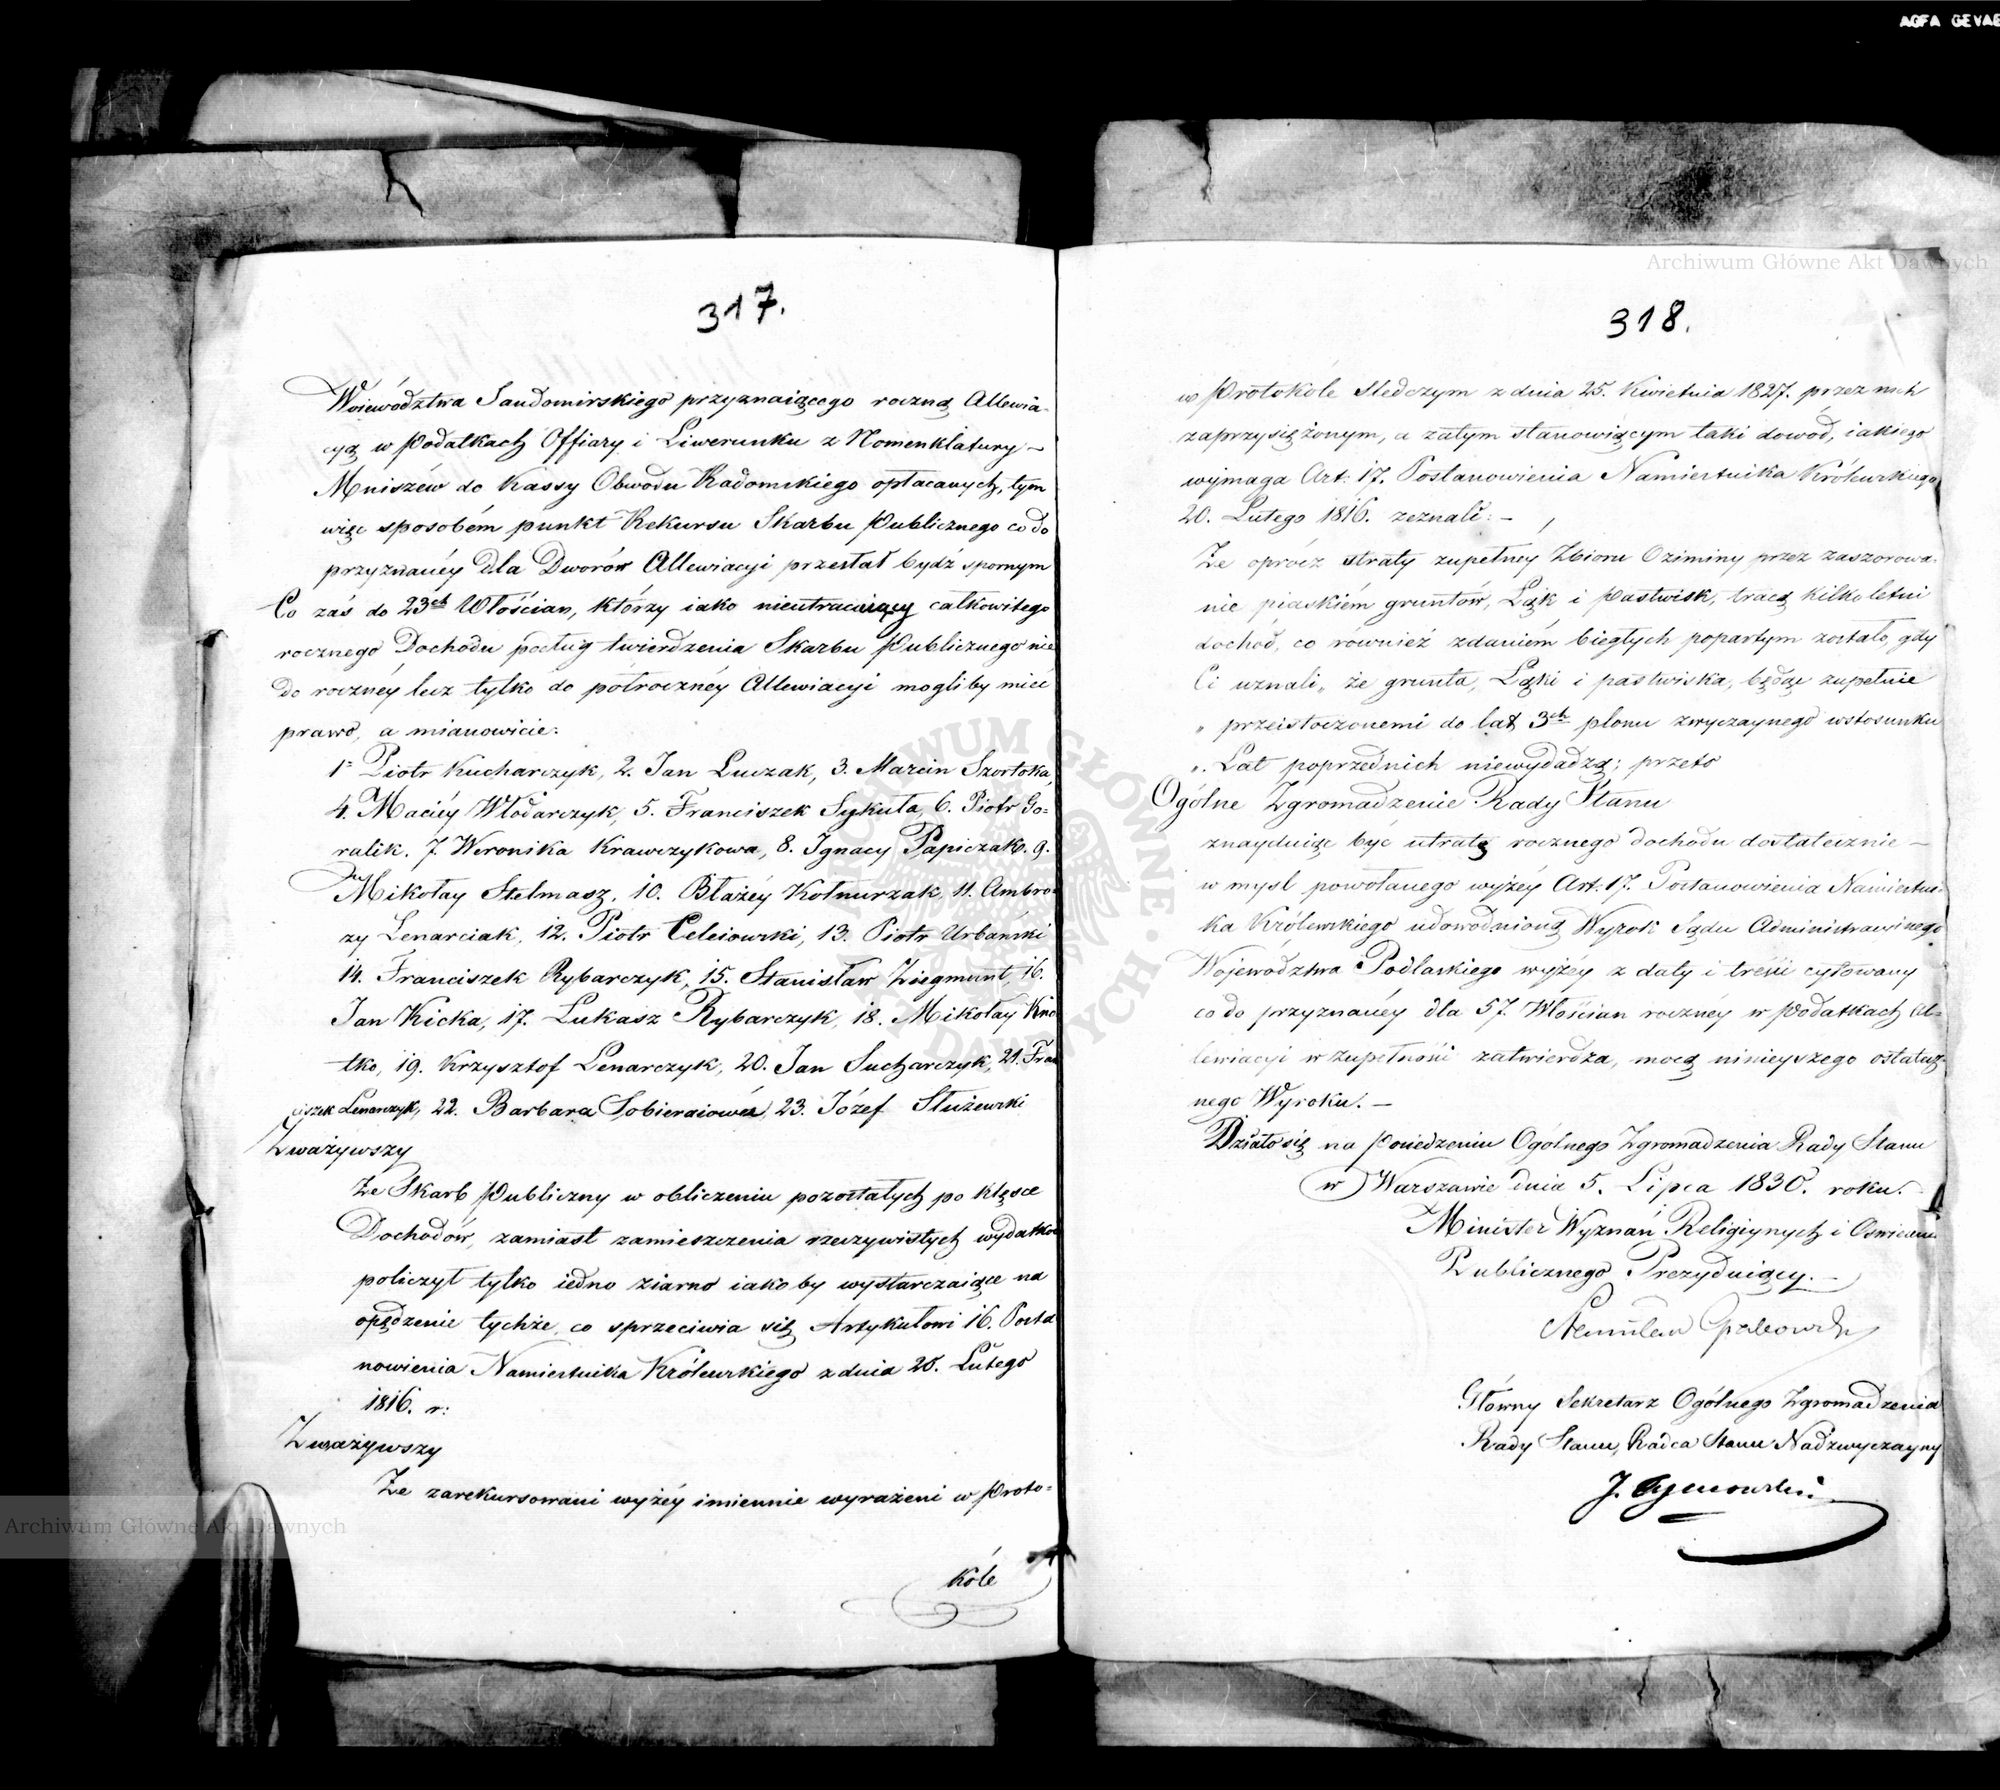 AGFA GEVAE
Archiwum Główne Akt Dawnych
317.
Woiewództwa Sandomirskiego przyznaiącego roczną Allewia-
cyą w Podatkach Offiary i Liwerunku z Nomenklatury –
Mniszew do Kassy Obwodu Radomskiego opłacanych, tym
więc sposobem punkt Rekursu Skarbu Publicznego co do
przyznanéy dla Dworów Allewiacyi przestał bydź spornym
Co zaś do 23ch Włościan, którzy iako nieutracaiący całkowitego
rocznego Dochodu podług twierdzenia Skarbu Publicznego nie
do rocznéy lecz tylko do półrocznéy Allewiacyi mogliby mieć
prawo, a mianowicie:
1= Piotr Kucharczyk, 2. Jan Luczak, 3. Marcin Szortoka,
4. Maciéy Włodarczyk, 5. Franciszek Sykuła, 6. Piotr Go-
ralik. 7. Weronika Krawczykowa, 8. Ignacy Papiczak. 9.
Mikołay Stelmasz, 10. Błażéy Kołnurzak, 11. Ambro-
zy Lenarciak, 12. Piotr Celeiowski, 13. Piotr Urbański
14. Franciszek Rybarczyk, 15. Stanisław Ziegmunt, 16.
Jan Kicka, 17. Łukasz Rybarczyk, 18. Mikołay Kno
tko, 19. Krzysztof Lenarczyk, 20. Jan Sucharczyk, 21. Fran
ciszek Lenarczyk, 22. Barbara Sobieraiowa, 23. Józef Służewski
Zważywszy
Ze Skarb Publiczny w obliczeniu pozostałych po klęsce
Dochodów, zamiast zamieszczenia rzeczywistych wydatkow
policzył tylko iedno ziarno iakoby wystarczaiące na
opędzenie tychże, co sprzeciwia się Artykułowi 16. Posta
nowienia Namiestnika Królewskiego z dnia 20. Lutego
1816. r:
Zważywszy
Ze zarekursowani wyżéy imiennie wyrażeni w Proto-
kóle
318.
w Protokóle śledczym z dnia 25. Kwietnia 1827. przez nich
zaprzysiężonym, a zatym stanowiącym taki dowód, iakiego
wymaga Art: 17. Postanowienia Namiestnika Królewskiego
20. Lutego 1816. zeznali: –
Ze oprócz straty zupełnéy Zbioru Oziminy przez zaszorowa-
nie piaskiém gruntów, Łąk i Pastwisk, tracą kilkoletni
dochód, co również zdaniém biegłych popartym zostało, gdy
Ci uznali „ że grunta, Łąki i pastwiska, będąc zupełnie
„ przeistoczonemi do lat 3ch plonu zwyczaynego wstosunku
„ Lat poprzednich niewydadzą; przeto
Ogólne Zgromadzenie Rady Stanu
znayduiąc być utratę rocznego dochodu dostatecznie –
w mysl powołanego wyżéy Art: 17. Postanowienia Namiestni-
ka Królewskiego udowodnioną Wyrok Sądu Administracyinego
Woiewództwa Podlaskiego wyżéy z daty i treści cytowany
co do przyznanéy dla 57. Włościan rocznéy w Podatkach Al-
lewiacyi w zupełności zatwierdza, mocą ninieyszego ostatecz-
nego Wyroku. –
Działo się na Posiedzeniu Ogólnego Zgromadzenia Rady Stanu
w Warszawie dnia 5. Lipca 1830. roku.
Minister Wyznań Religiynych i Oswiecenia
Publicznego Prezyduiący. –
Stanisław Grabowski
Główny Sekretarz Ogólnego Zgromadzenia
Rady Stanu, Radca Stanu Nadzwyczayny
J. Tymowski
ARCHIWUM GŁÓWNE AKT DAWNYCH
Archiwum Główne Akt Dawnych